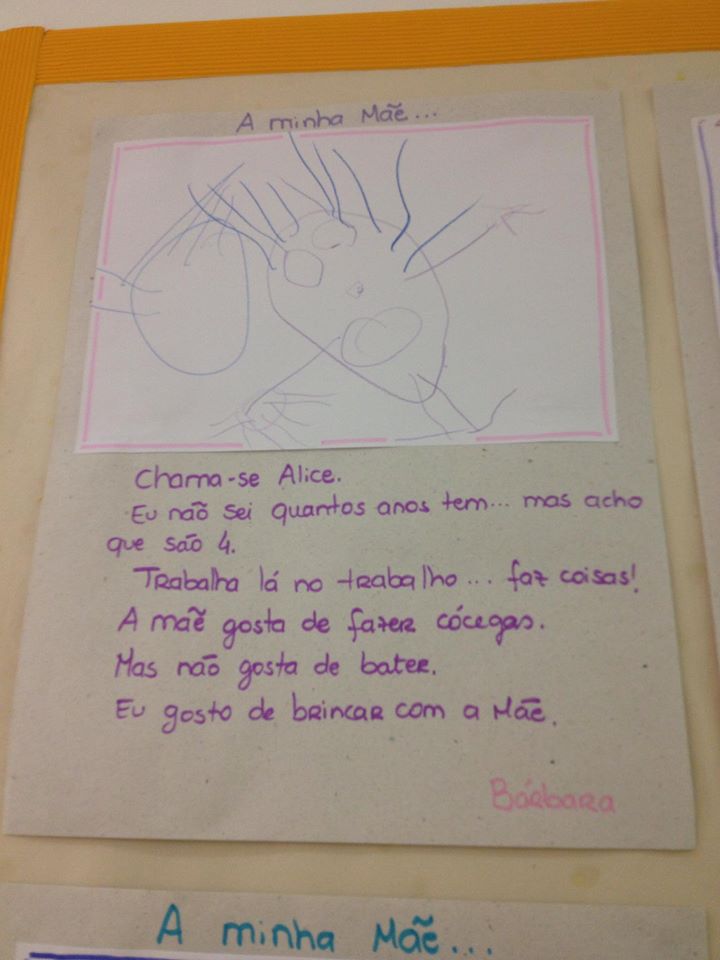 A minha Mãe...
Chama-se Alice.
Eu não sei quantos anos tem... mas acho
que são 4.
Trabalha lá no trabalho... faz coisas!
A mãe gosta de fazer cócegas.
Mas não gosta de bater.
Eu gosto de brincar com a Mãe.
Bárbara
A minha Mãe...